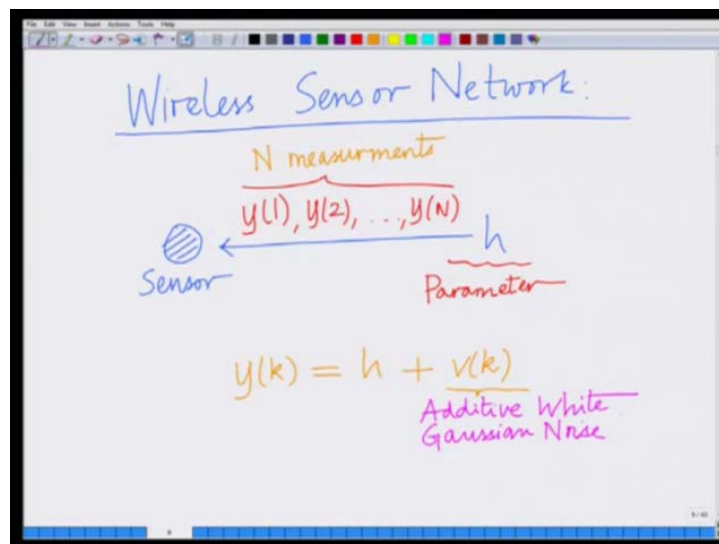 File Edit View Insert Actions Tools Help
Wireless Sensor Network:
N measurments
y(1), y(2), ..., y(N)
h
Sensor
Parameter
y(k) = h + v(k)
Additive White
Gaussian Noise